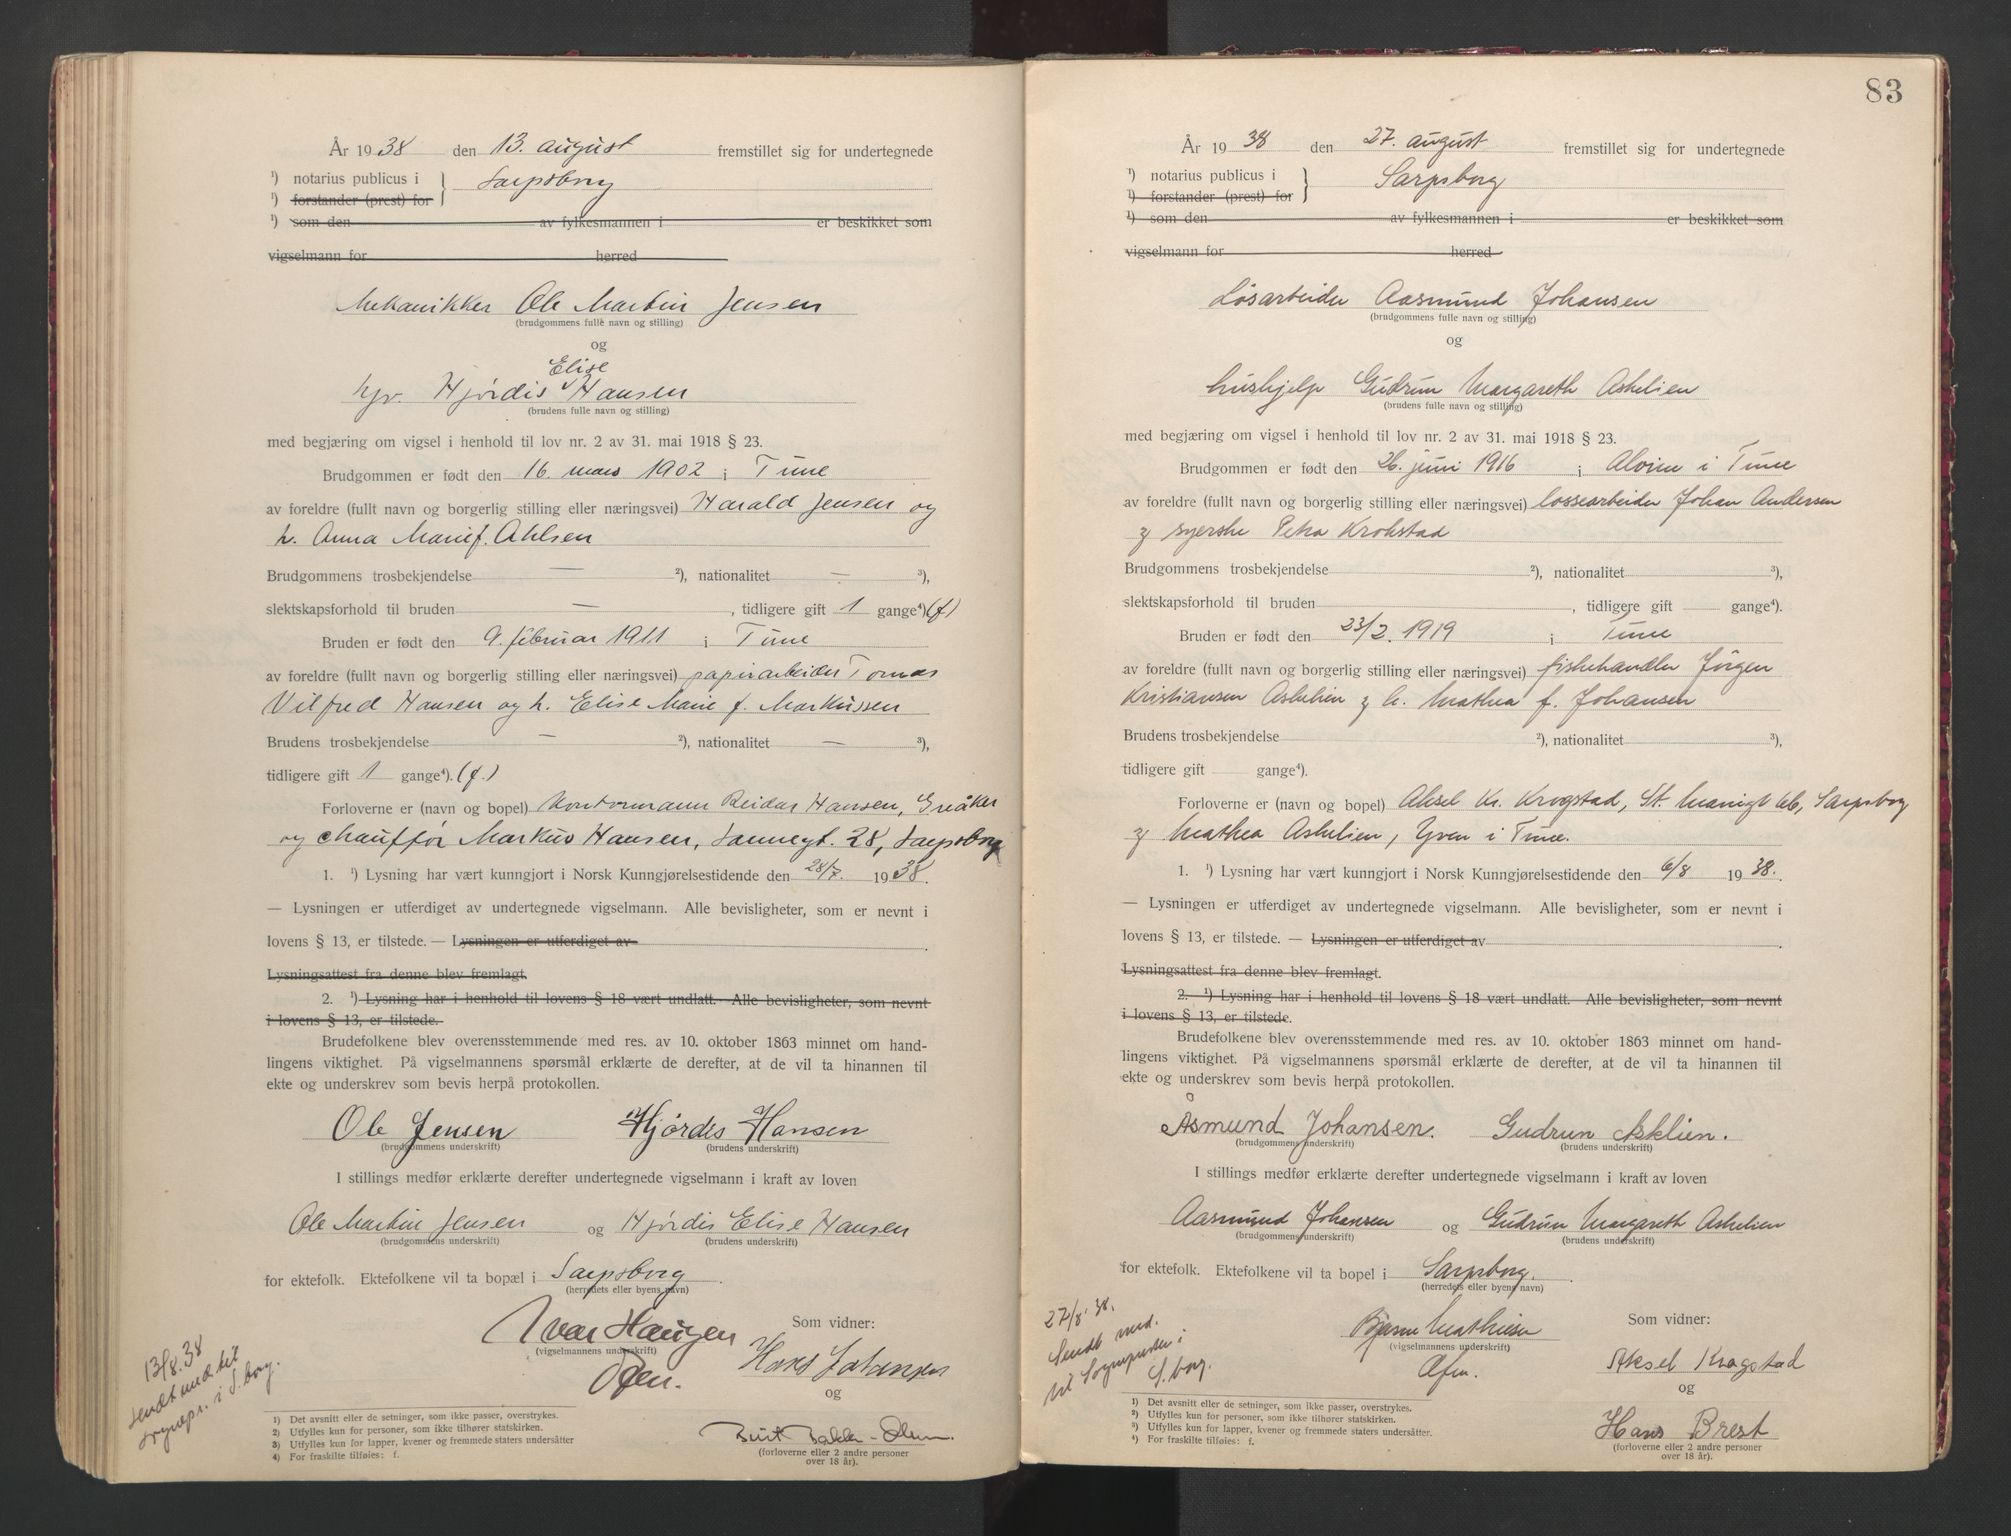 År 1938 den 13. august fremstillet sig for undertegnede
¹) notarius publicus i } Sarpsborg
¹) forstander (prest) for
¹) som den av fylkesmannen i er beskikket som
vigselmann for herred
Mekanikker Ole Martin Jensen
(brudgommens fulle navn og stilling)
og
Elise
hjv. Hjördis v Hansen
(brudens fulle navn og stilling)
med begjæring om vigsel i henhold til lov nr. 2 av 31. mai 1918 § 23.
Brudgommen er født den 16. mars 1902 i Tune
av foreldre (fullt navn og borgerlig stilling eller næringsvei) Harald Jensen og
h. Anna Marie f. Ahlsen
Brudgommens trosbekjendelse — ²), nationalitet — ³),
slektskapsforhold til bruden — , tidligere gift 1 gange⁴) (f)
Bruden er født den 9. februar 1911 i Tune
av foreldre (fullt navn og borgerlig stilling eller næringsvei) papirarbeider Tomas
Vilfred Hansen og h. Elise Marie f. Markussen
Brudens trosbekjendelse — ²), nationalitet — ³),
tidligere gift 1 gange⁴). (f.)
Forloverne er (navn og bopel) Kontormann Reidar Hansen, Greåker
og chauffør Markus Hansen, Sannesgt. 28, Sarpsborg
1. ¹) Lysning har vært kunngjort i Norsk Kunngjørelsestidende den 28/7. 1938.
— Lysningen er utferdiget av undertegnede vigselmann. Alle bevisligheter, som er nevnt i
lovens § 13, er tilstede. — Lysningen er utferdiget av .
Lysningsattest fra denne blev fremlagt.
2. ¹) Lysning har i henhold til lovens § 18 vært undlatt. Alle bevisligheter, som nevnt
i lovens § 13, er tilstede.
Brudefolkene blev overensstemmende med res. av 10. oktober 1863 minnet om hand-
lingens viktighet. På vigselmannens spørsmål erklærte de derefter, at de vil ta hinannen til
ekte og underskrev som bevis herpå protokollen.
Ole Jensen Hjørdis Hansen
(brudgommens underskrift) (brudens underskrift)
I stillings medfør erklærte derefter undertegnede vigselmann i kraft av loven
Ole Martin Jensen og Hjördis Elise Hansen
(brudgommens underskrift) (brudens underskrift)
for ektefolk. Ektefolkene vil ta bopæl i Sarpsborg .
(herredets eller byens navn)
Ivar Haugen Som vidner:
(vigselmannens underskrift)
Hans Johansen
og
13/8.38
sendt und til
sognepr. i S.borg.
(forloverne eller 2 andre personer
over 18 år).
1) Det avsnitt eller de setninger, som ikke passer, overstrykes.
2) Utfylles kun for personer, som ikke tilhører statskirken.
3) Utfylles kun for lapper, kvener og fremmede staters undersåtter
4) For fraskilte tilføies: f.
83
År 1938 den 27. august fremstillet sig for undertegnede
¹) notarius publicus i } Sarpsborg
¹) forstander (prest) for
¹) som den av fylkesmannen i er beskikket som
vigselmann for herred
Løsarbeider Aasmund Johansen
(brudgommens fulle navn og stilling)
og
hushjelp Gudrun Margareth Askelien
(brudens fulle navn og stilling)
med begjæring om vigsel i henhold til lov nr. 2 av 31. mai 1918 § 23.
Brudgommen er født den 26. juni 1916 i Alvim i Tune
av foreldre (fullt navn og borgerlig stilling eller næringsvei) lossearbeider Johan Andersen
og syerske Petra Krokstad
Brudgommens trosbekjendelse ²), nationalitet ³),
slektskapsforhold til bruden , tidligere gift gange⁴).
Bruden er født den 23/2. 1919 i Tune
av foreldre (fullt navn og borgerlig stilling eller næringsvei) fiskehandler Jörgen
Kristiansen Askelien og h. Mathea f. Johansen
Brudens trosbekjendelse ²), nationalitet ³),
tidligere gift gange⁴).
Forloverne er (navn og bopel) Aksel Kr. Krogstad, St. Mariegt 66, Sarpsborg
og Mathea Askelien, Yven i Tune.
1. ¹) Lysning har vært kunngjort i Norsk Kunngjørelsestidende den 6/8 1938.
— Lysningen er utferdiget av undertegnede vigselmann. Alle bevisligheter, som er nevnt i
lovens § 13, er tilstede. — Lysningen er utferdiget av .
Lysningsattest fra denne blev fremlagt.
2. ¹) Lysning har i henhold til lovens § 18 vært undlatt. Alle bevisligheter, som nevnt
i lovens § 13, er tilstede.
Brudefolkene blev overensstemmende med res. av 10. oktober 1863 minnet om hand-
lingens viktighet. På vigselmannens spørsmål erklærte de derefter, at de vil ta hinannen til
ekte og underskrev som bevis herpå protokollen.
Åsmund Johansen. Gudrun Asklien.
(brudgommens underskrift) (brudens underskrift)
I stillings medfør erklærte derefter undertegnede vigselmann i kraft av loven
Aasmund Johansen og Gudrun Margareth Askelien
(brudgommens underskrift) (brudens underskrift)
for ektefolk. Ektefolkene vil ta bopel i Sarpsborg.
(herredets eller byens navn)
27/8 38.
Sendt und.
til Sognepresten i
S.borg.
Bjarne Mathiesen Som vidner:
(vigselmannens underskrift)
Aksel Krogstad
og
Hans Brest
(forloverne eller 2 andre personer
over 18 år).
¹) Det avsnitt eller de setninger, som ikke passer, overstrykes.
²) Utfylles kun for personer, som ikke tilhører statskirken.
³) Utfylles kun for lapper, kvener og fremmede staters undersåtter.
⁴) For fraskilte tilføies: f.